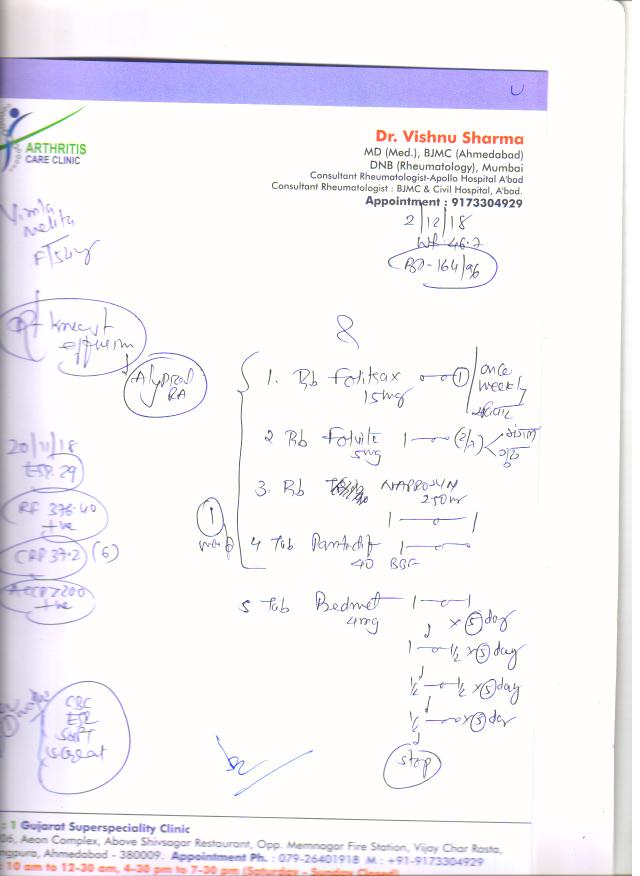 ARTHRITIS
CARE CLINIC
Dr. Vishnu Sharma
MD (Med.), BJMC (Ahmedabad)
DNB (Rheumatology), Mumbai
Consultant Rheumatologist-Apollo Hospital A'bad
Consultant Rheumatologist : BJMC & Civil Hospital, A'bad.
Appointment : 9173304929
2/12/18
Wt 46.7
BP-164/96
Vimla
Mehta
F/54y
RA
1. Folitrax 1
15mg
once
week
20/11/18
ESR 29
RF 376.40
+ve
CRP 37.2 (6)
ACCP >200
+ve
2 Folvite 1 (2/7)
5mg
3. NAPROSYN
250
1 — o — 1
1
4 Tab 1 — o — o
40 BBF
5 Tab 1 — o — 1
4mg x 5 day
1 — o — 1/2 x 5 day
1/2 — o — 1/2 x 5 day
1/2 — o — o x 5 day
stop
CBC
ESR
SGPT
S. Creat
: 1 Gujarat Superspeciality Clinic
06, Aeon Complex, Above Shivsagar Restaurant, Opp. Memnagar Fire Station, Vijay Char Rasta,
ngpura, Ahmedabad - 380009. Appointment Ph. : 079-26401918 M : +91-9173304929
10 am to 12-30 am, 4-30 pm to 7-30 pm (Saturday - Sunday Closed)